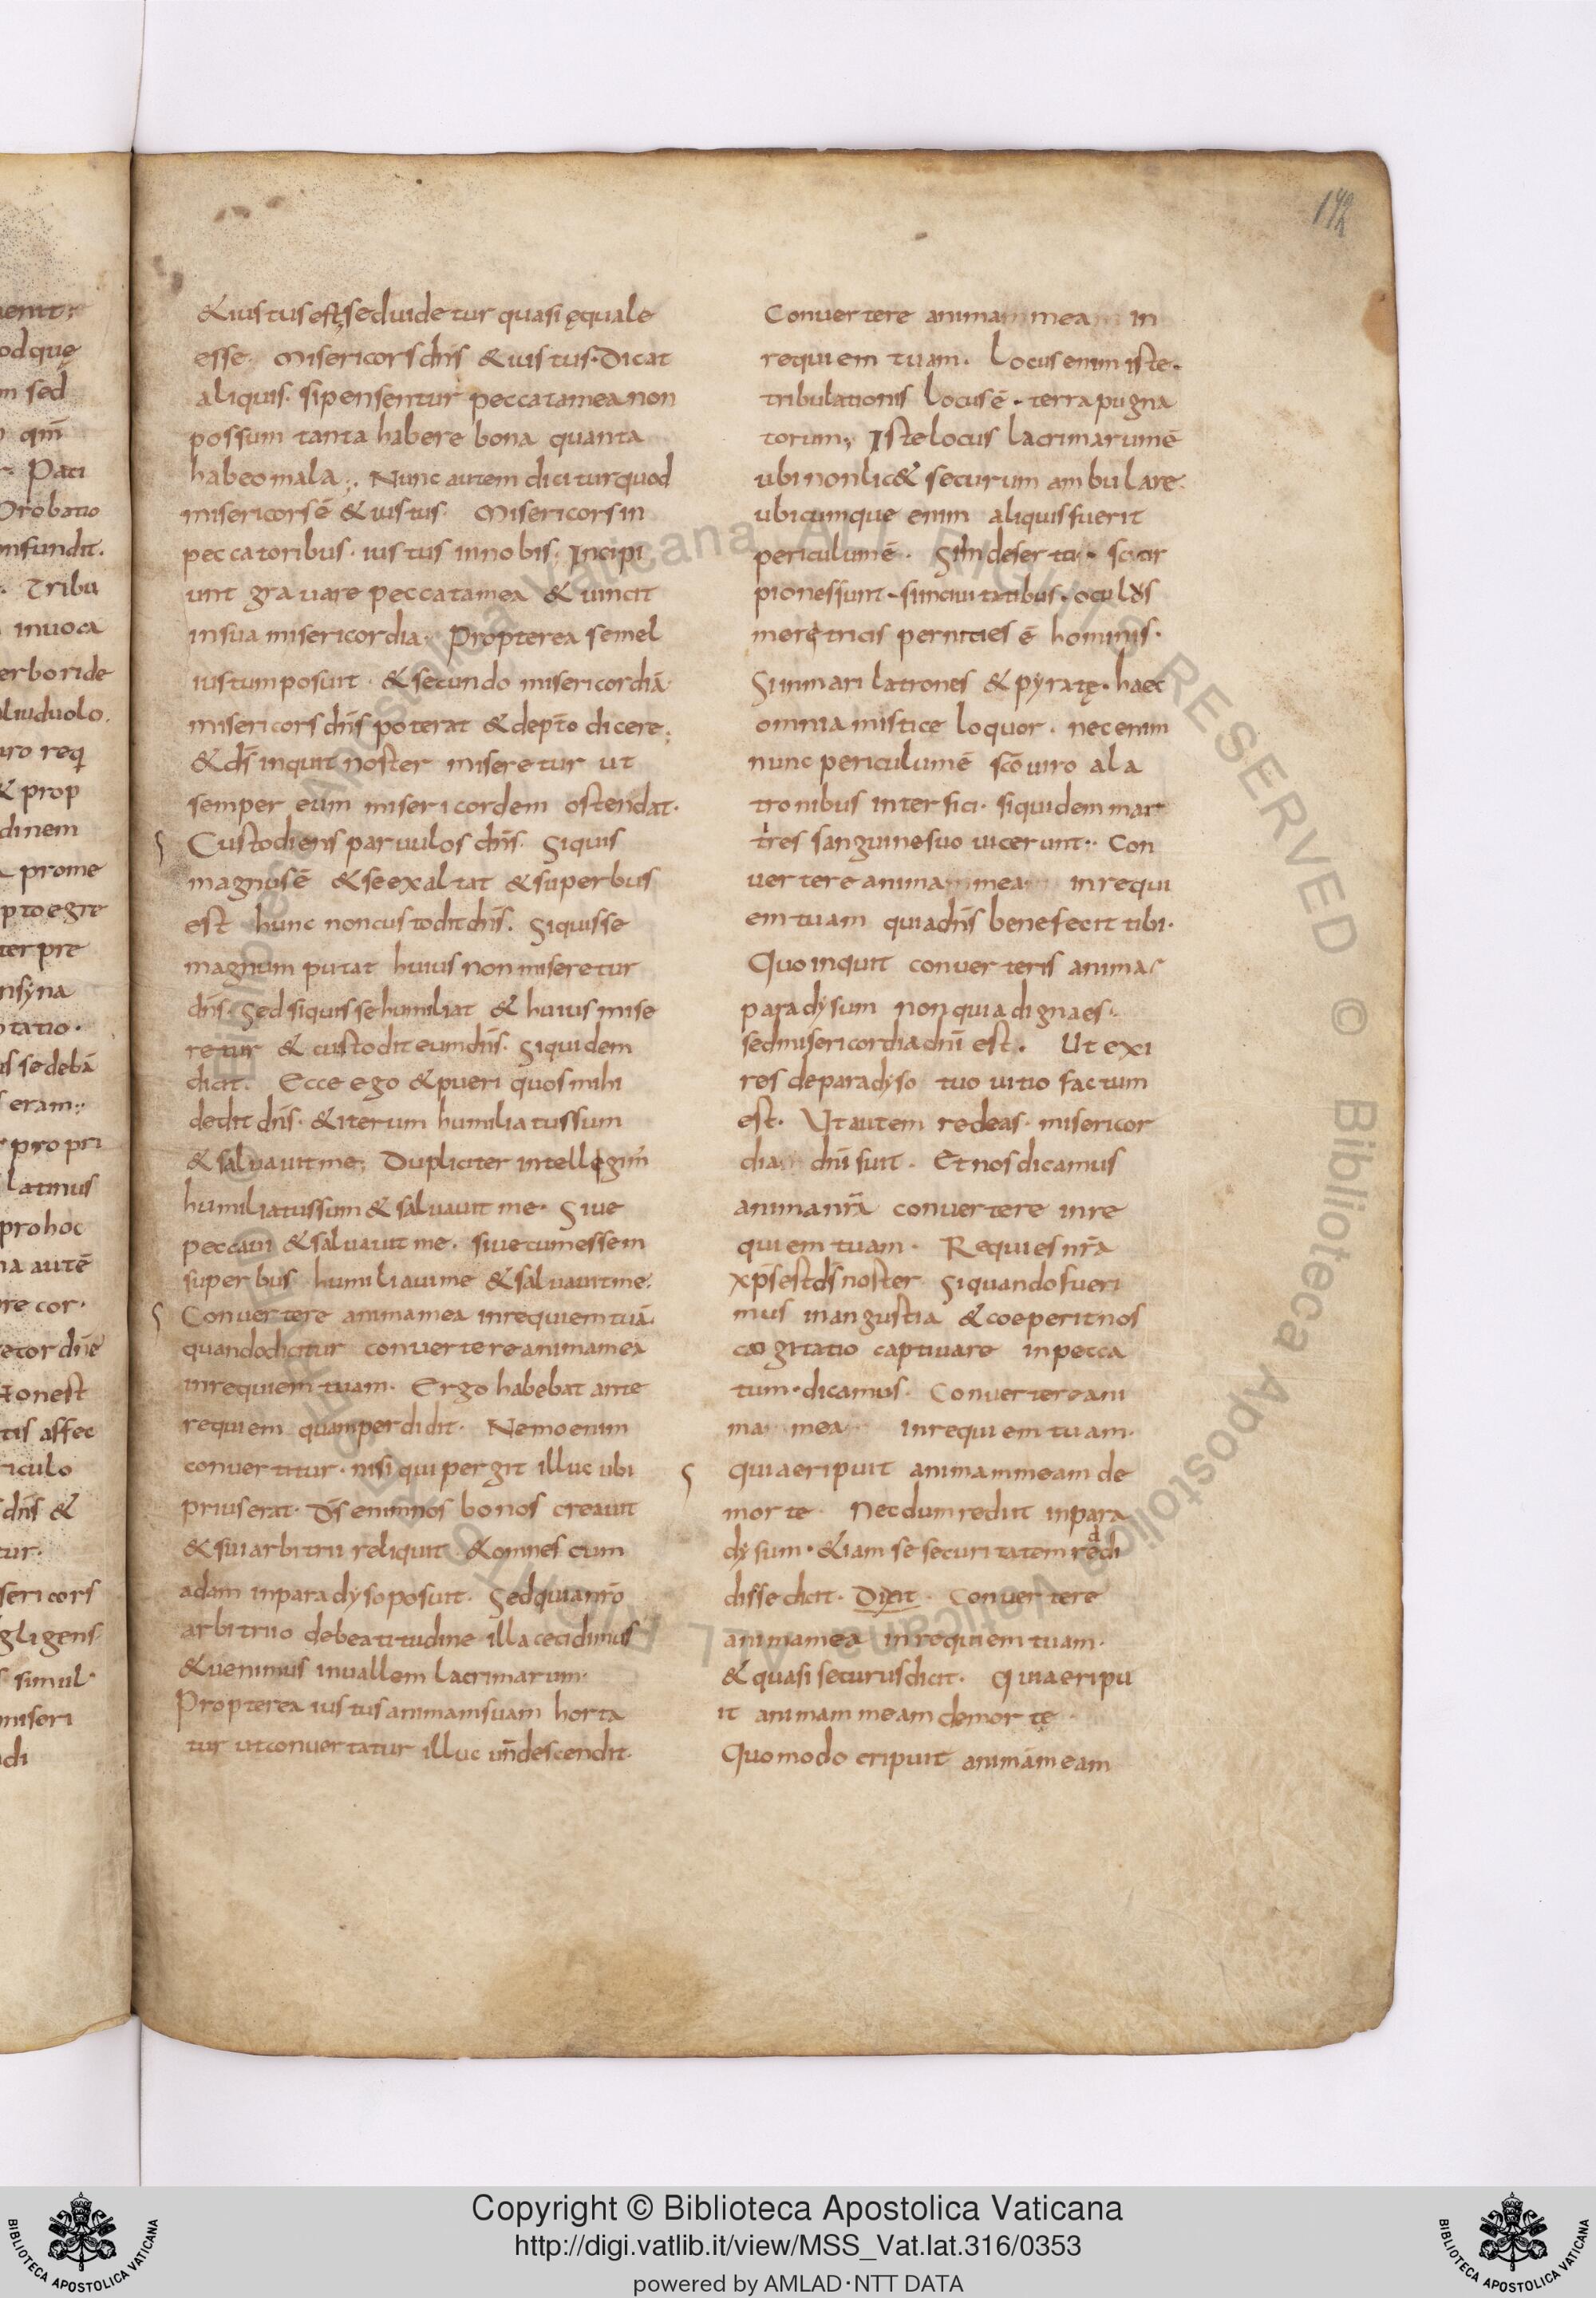 142
& iustus est, sed uidetur quasi ęquale
esse. Misericors dn̄s & iustus. Dicat
aliquis. si pensentur peccata mea non
possum tanta habere bona quanta
habeo mala; Nunc autem dicitur quod
misericors ē & iustus. Misericors in
peccatoribus. iustus in nobis. Incipi
unt grauare peccata mea & uincit
in sua misericordia. Propterea semel
iustum posuit. & secundo misericordiā.
misericors dn̄s poterat & dep̄to dicere;
& d̄s inquit noster miseretur ut
semper eum misericordem ostendat.
Custodiens paruulos dn̄s. Siquis
magnus ē & se exaltat & superbus
est hunc non custodit dn̄s. Siquis se
magnum putat huius non miseretur
dn̄s. Sed siquis se humiliat & huius mise
retur & custodit eum dn̄s. Siquidem
dicit. Ecce ego & pueri quos mihi
dedit dn̄s. & iterum humiliatus sum
& saluauit me; Dupliciter intellegim̄
humiliatus sum & saluauit me. Siue
peccaui & saluauit me. siue cum essem
superbus humiliaui me & saluauit me.
Conuertere anima mea in requiem tuā.
quando dicitur conuertere anima mea
in requiem tuam. Ergo habebat ante
requiem quam perdidit. Nemo enim
conuertitur. nisi qui pergit illuc ubi
prius erat. D̄s enim nos bonos creauit
& sui arbitrii reliquit & omnes cum
adam in paradyso posuit. Sed quia nr̄o
arbitrio de beatitudine illa cecidimus
& uenimus in uallem lacrimarum.
Propterea iustus animam suam horta
tur ut conuertatur illuc un̄ descendit.
Conuertere anima mea in
requiem tuam. Locus enim iste.
tribulationis locus ē. terra pugna
torum; Iste locus lacrimarum ē
ubi non lic& securum ambulare.
ubicumque enim aliquis fuerit
periculum ē. Si in deserto. scor
piones sunt. si in ciuitatibus. oculus
meretricis pernities ē hominis.
Si in mari latrones & pyratę. haec
omnia mistice loquor. nec enim
nunc periculum ē sc̄o uiro a la
tronibus interfici. siquidem mar
tires sanguine suo uicerunt. Con
uertere anima mea in requi
em tuam quia dn̄s benefecit tibi.
Quo inquit conuerteris anima
paradysum non quia digna es.
sed misericordia dn̄i est. Ut exi
res de paradyso tuo uitio factum
est. Ut autem redeas. misericor
dia dn̄i fuit. Et nos dicamus
anima nr̄a conuertere in re
quiem tuam. Requies nr̄a
xp̄s est d̄s noster. Si quando fueri
mus in angustia & coeperit nos
cogitatio captiuare in pecca
tum. dicamus. Conuertere ani
ma mea in requiem tuam.
quia eripuit animam meam de
morte. Necdum rediit in para
dysum. & iam se securitatem reddi
disse dicit. Dixit. Conuertere
anima mea in requiem tuam.
& quasi securus dicit. Quia eripu
it animam meam de morte
Quomodo eripuit animā meam
Copyright © Biblioteca Apostolica Vaticana
http://digi.vatlib.it/view/MSS_Vat.lat.316/0353
powered by AMLAD·NTT DATA
BIBLIOTECA APOSTOLICA VATICANA
BIBLIOTECA APOSTOLICA VATICANA